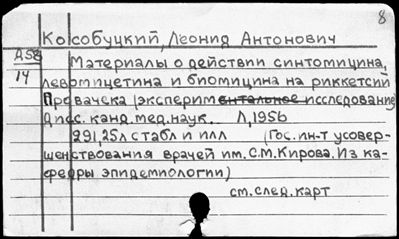 8
Кособуцкий, Леонид Антонович
А58 Материалы о действии синтомицина,
14 левомицетина и биомицина на риккетсий
Провачека (экспериментальное исследование)
Дисс. канд. мед. наук. Л, 1956
291, 25л стабл и илл (Гос. ин-т усовер-
шенствования врачей им. С.М. Кирова. Из ка-
федры эпидемиологии)
см. след. карт